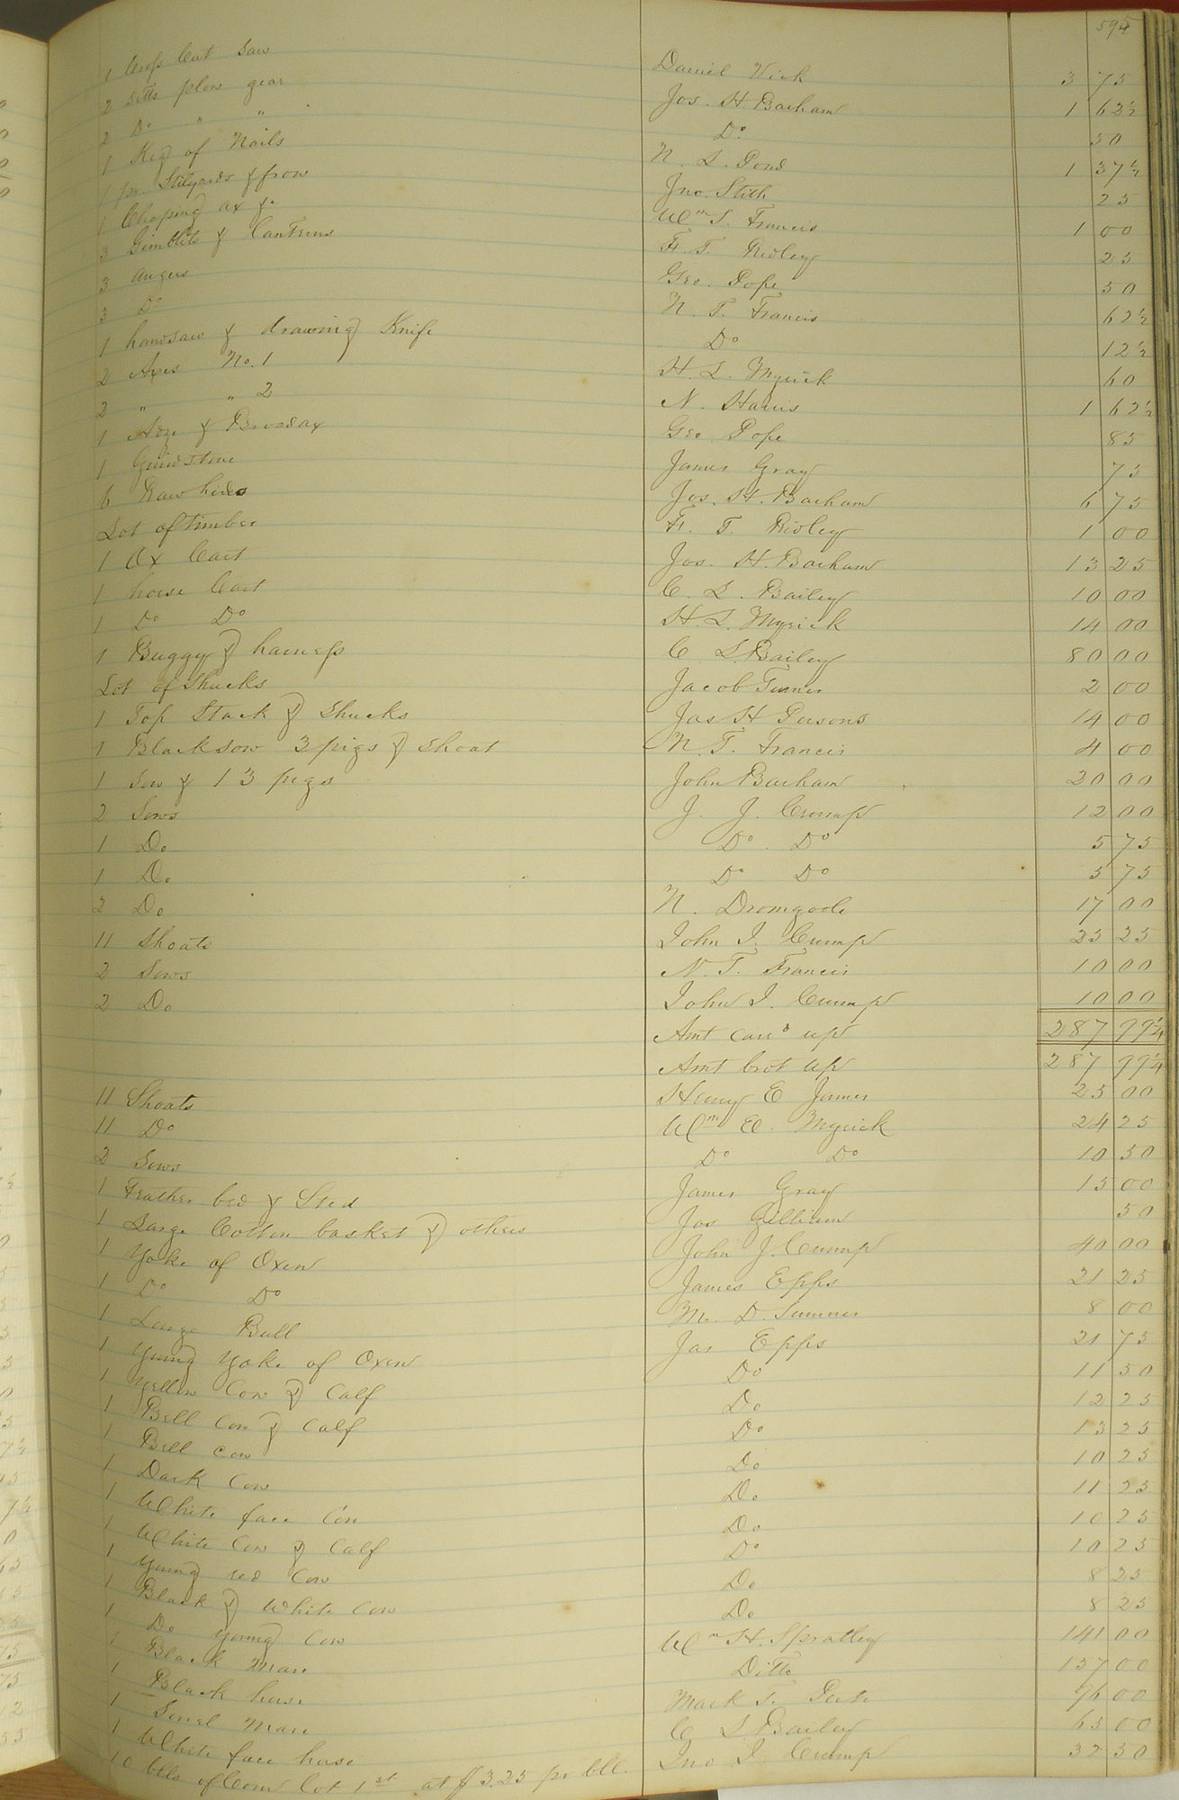 595
1 Cross Cut Saw Daniel Vick 3 75
2 setts plow gear Jos. H. Barham 1 62½
2 Do " " Do 50
1 Keg of Nails N. L. Pond 1 37½
1 pr. Stilyards & frow Jno. Stith 25
1 Choping ax &c Wm S. Francis 1 00
3 Gimblets & Canteens F. T. Ridley 25
3 augers Geo. Pope 50
3 Do N. T. Francis 62½
1 handsaw & drawing Knife Do 12½
2 Axes No. 1 H. L. Myrick 60
2 " " 2 N. Harris 1 62½
1 Adze & Broadax Geo Pope 85
1 Grindstone James Gray 75
6 Raw hides Jos. H. Barham 6 75
Lot of timber F. T. Ridley 1 00
1 Ox Cart Jos. H. Barham 13 25
1 horse Cart C. L. Bailey 10 00
1 Do Do H. L. Myrick 14 00
1 Buggy & harness C L. Bailey 80 00
Lot of Shucks Jacob Turner 2 00
1 Top Stack & Shucks Jas H Persons 14 00
1 Black sow 3 pigs & Shoat N. T. Francis 4 00
1 Sow & 13 pigs John Barham 20 00
2 Sows J. J. Crump 12 00
1 Do Do Do 5 75
1 Do Do Do 5 75
2 Do N. Dromgoole 17 00
11 Shoats John J. Crump 25 25
2 Sows N. T. Francis 10 00
2 Do John J. Crump 10 00
Amt card up 287 99¼
Amt brot up 287 99¼
11 Shoats Henry E Joyner 25 00
11 Do Wm E. Myrick 24 25
2 Sows Do Do 10 50
1 Feather bed & Sted James Gray 15 00
1 Large Cotton basket & others Jas Gilliam 50
1 Yoke of Oxen John J. Crump 40 00
1 Do Do James Epps 21 25
1 Large Bull M. D. Sumner 8 00
1 Young Yoke of Oxen Jas Epps 21 75
1 Yellow Cow & Calf Do 11 50
1 Bell Cow & Calf Do 12 25
1 Bell cow Do 13 25
1 Dark Cow Do 10 25
1 White face Cow Do 11 25
1 White Cow & Calf Do 10 25
1 Young red Cow Do 10 25
1 Black & White Cow Do 8 25
1 Do young Cow Do 8 25
1 Black Mare Wm H. Spratley 141 00
1 Black horse Ditto 157 00
1 Sorrel Mare Mark T. 96 00
1 White face horse C L Bailey 65 00
10 bbls of Corn Lot 1st at $3.25 pr bbl. Jno J. Crump 32 50